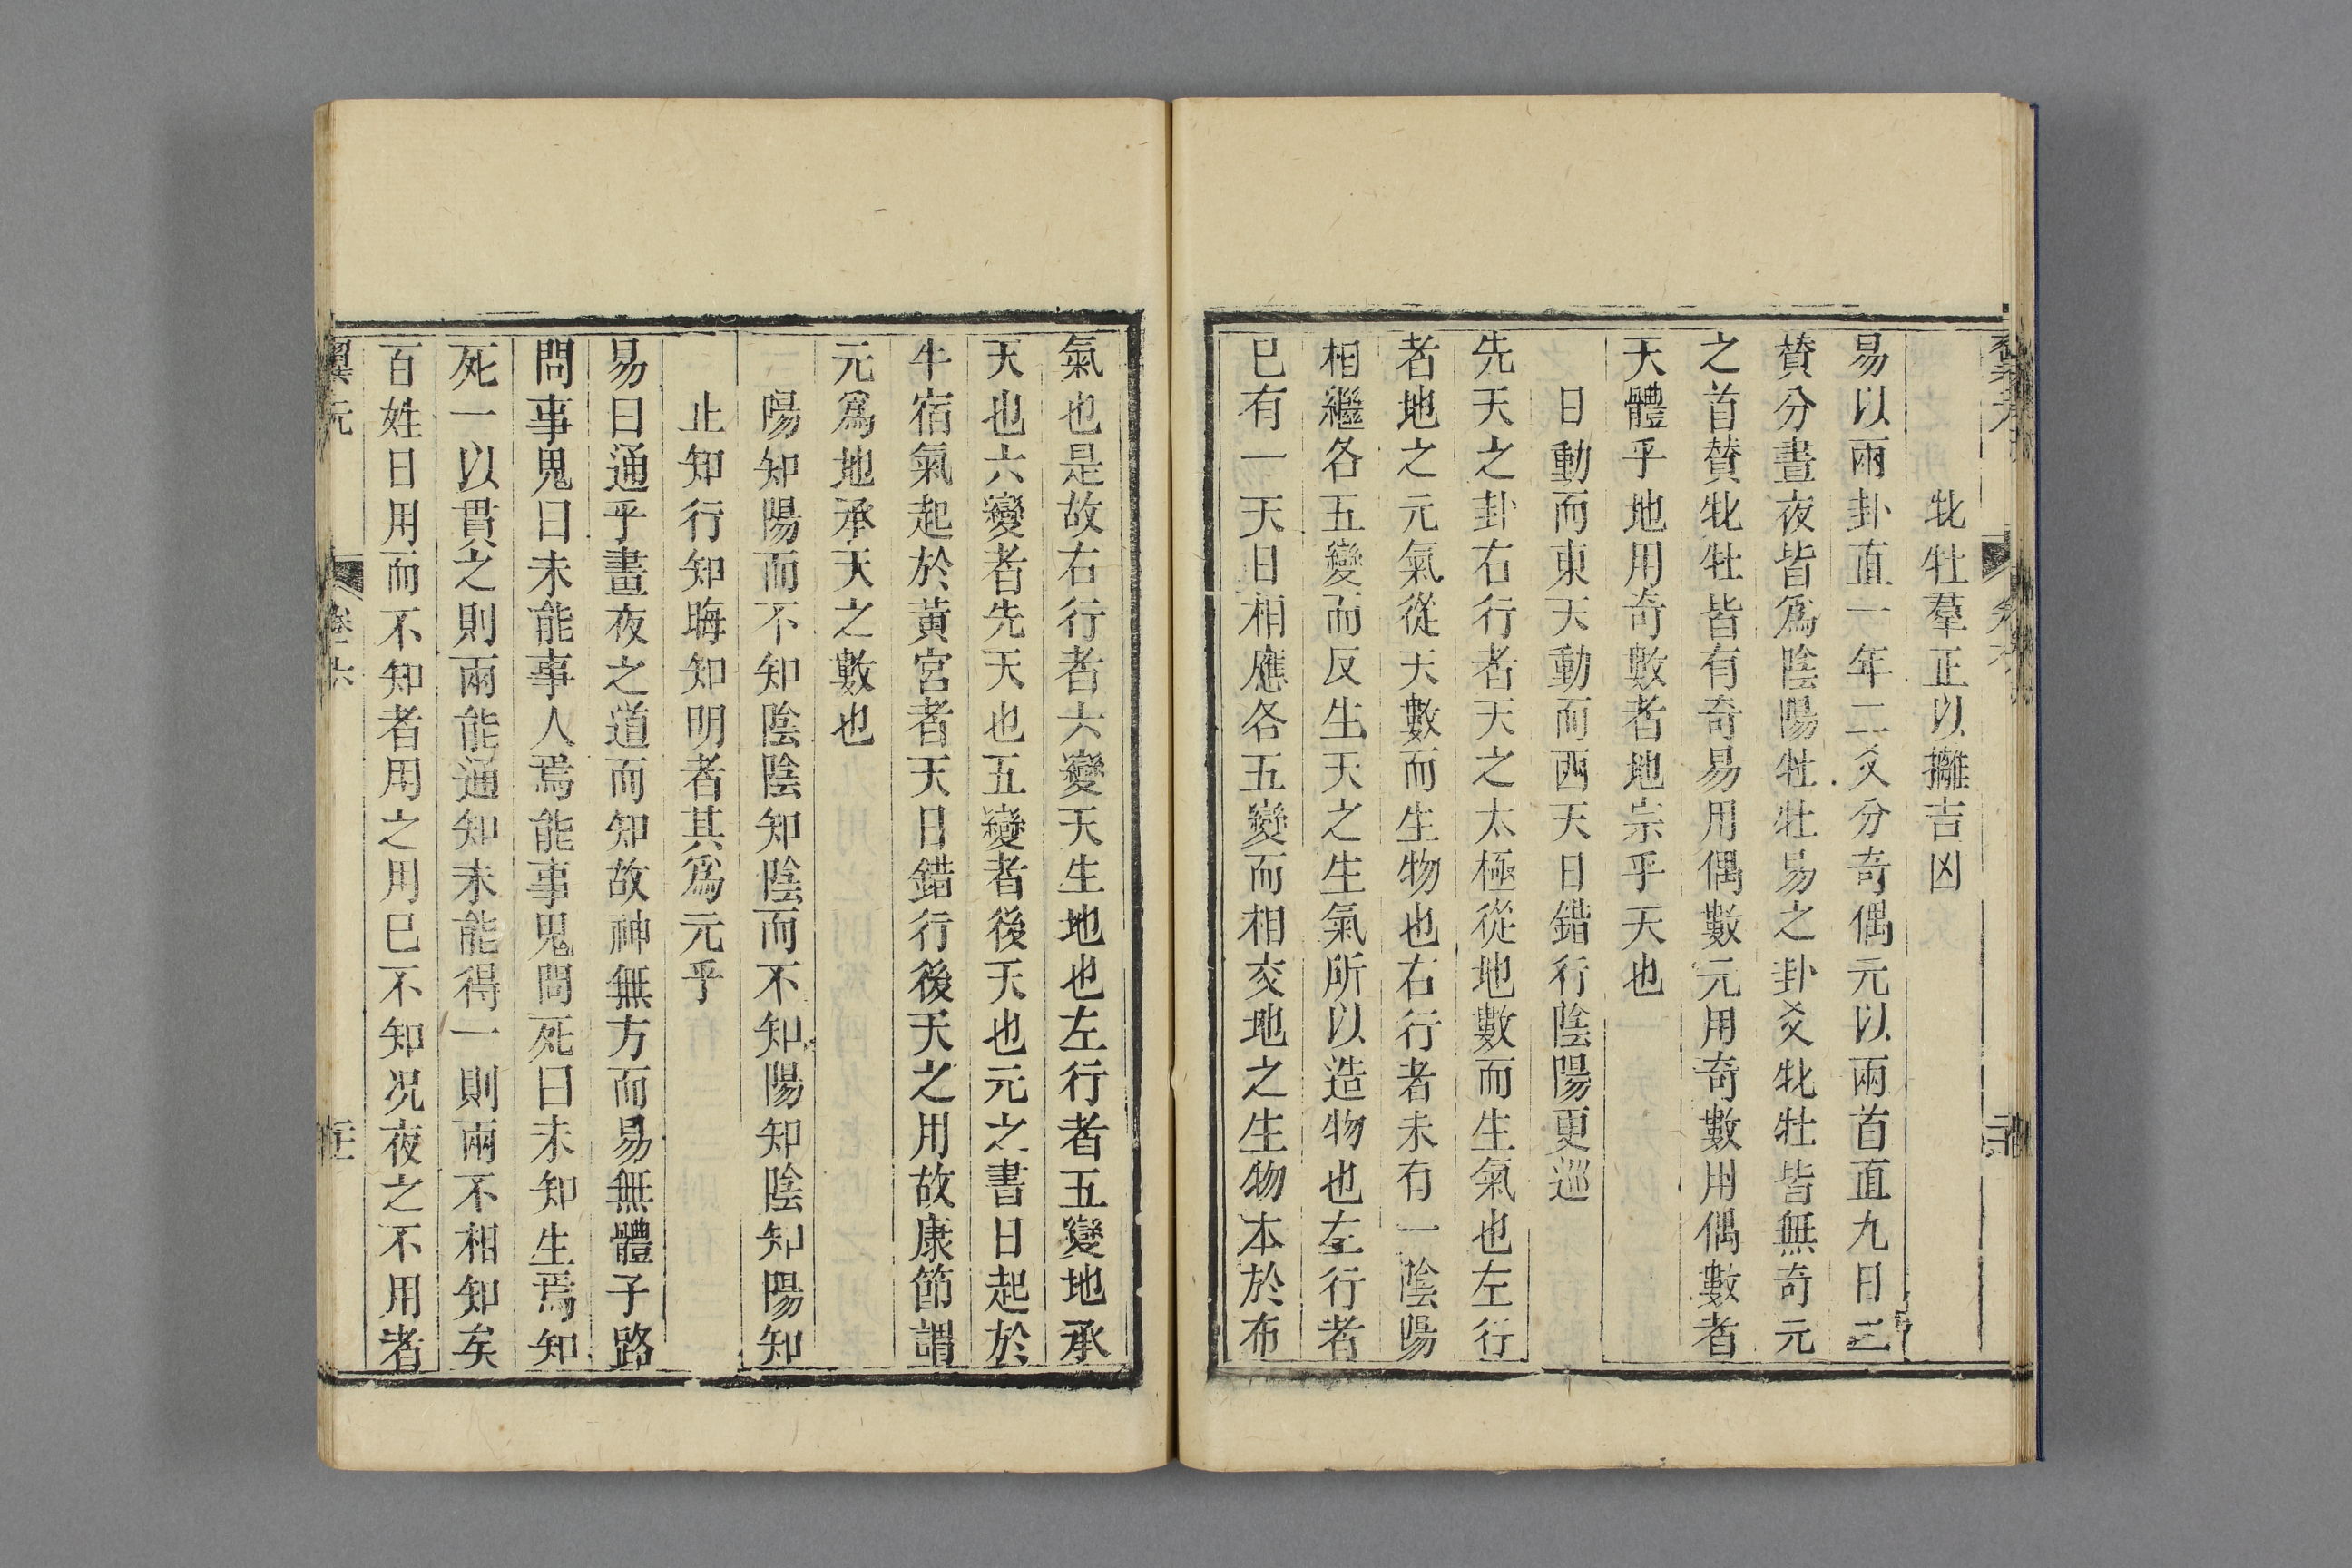 牝牡羣正以攡吉凶
易以兩卦直一年二爻分奇偶元以兩首直九日三
贊分晝夜皆爲陰陽牡牡易之卦爻牝牡皆無奇元
之首贊牝牡皆有奇易用偶數元用奇數用偶數者
天體乎地用奇數者地宗乎天也
日動而東天動而西天日錯行陰陽更巡
先天之卦右行者天之太極從地數而生氣也左行
者地之元氣從天數而生物也右行者未有一陰陽
相繼各五變而反生天之生氣所以造物也左行者
已有一天日相應各五變而相交地之生物本於布
氣也是故右行者六變天生地也左行者五變地承
天也六變者先天也五變者後天也元之書日起於
牛宿氣起於黃宮者天日錯行後天之用故康節謂
元爲地承天之數也
陽知陽而不知陰陰知陰而不知陽知陰知陽知
止知行知晦知明者其爲元乎
易曰通乎晝夜之道而知故神無方而易無體子路
問事鬼曰未能事人焉能事鬼問死曰未知生焉知
死一以貫之則兩能通知未能得一則兩不相知矣
百姓日用而不知者用之用已不知况夜之不用者
翼元 卷六